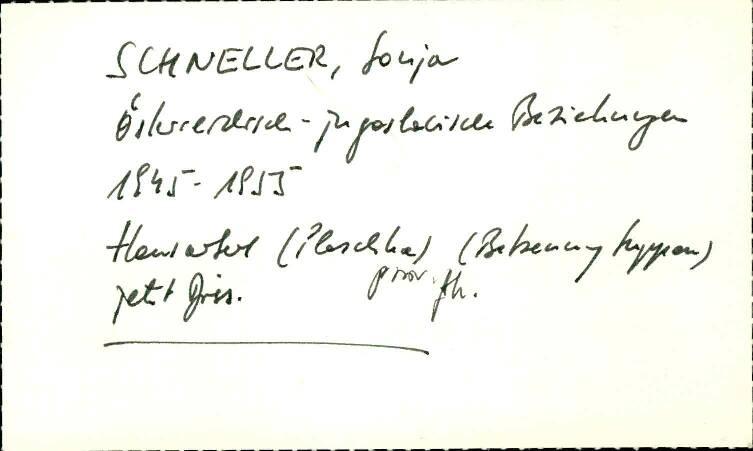 SCHNELLER, Sonja
Österreichisch-jugoslawische Beziehungen
1945-1955
Hausarbeit (Plaschka) (Betreuung Suppan)
jetzt Diss.